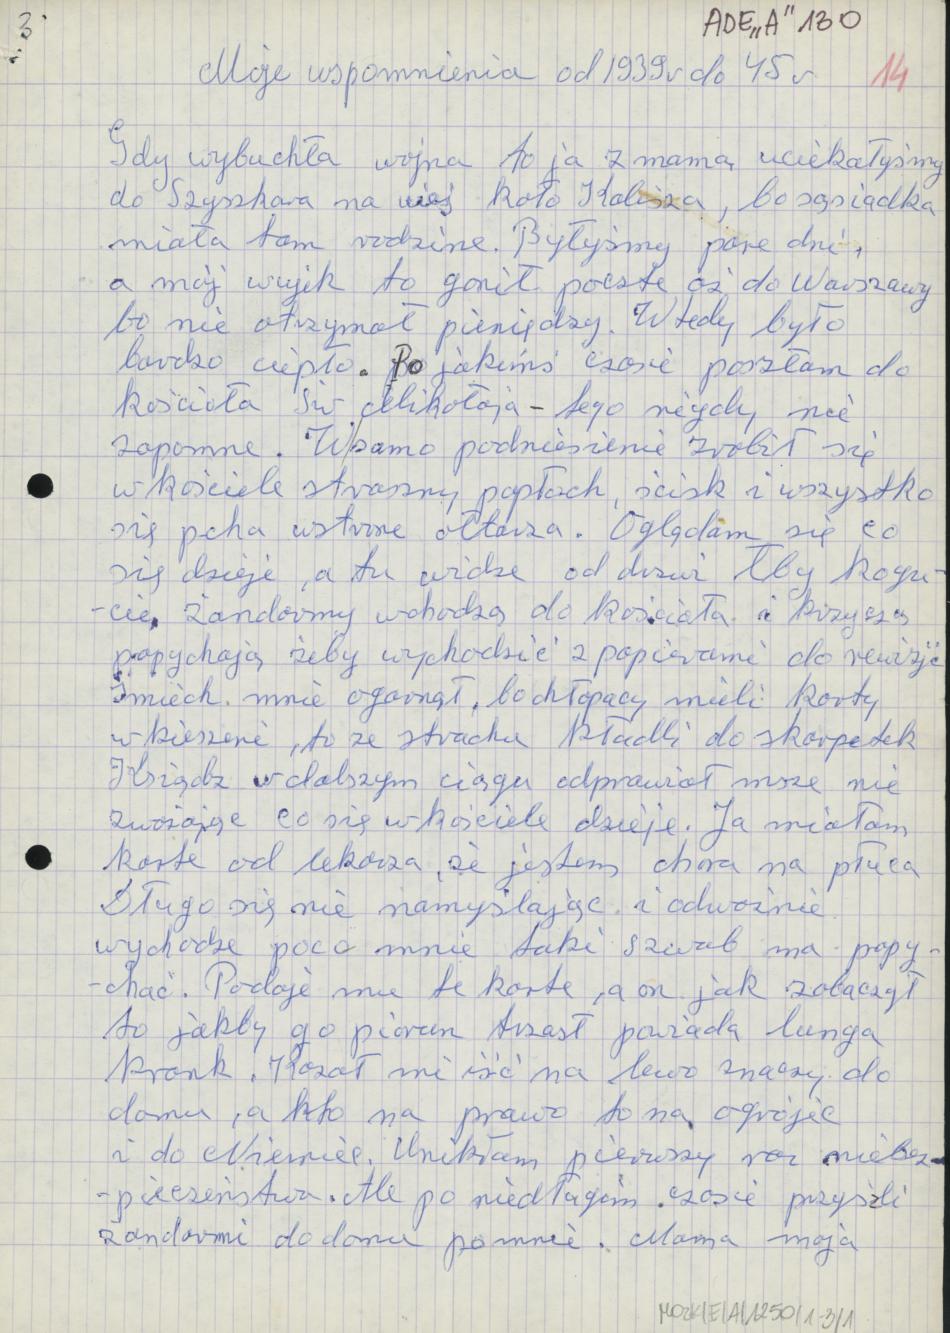 3
ADE„A" 130
Moje wspomnienia od 1939r do 45r
14
Gdy wybuchła wojna to ja z mamą uciekałyśmy
do Szyszkowa na wieś koło Kalisza, bo sąsiadka
miała tam rodzine. Byłyśmy pare dni,
a mój wujek to gonił poczte aż do Warszawy
bo nie otrzymał pieniędzy. Wtedy było
bardzo ciepło. Po jakimś czasie poszłam do
kościoła Św. Mikołaja – tego nigdy nie
zapomne. W samo podniesienie zrobił się
w kościele straszny popłoch, ścisk i wszystko
się pcha wstrone ołtarza. Oglądam się co
się dzieje, a tu widze od drzwi łby kogu-
-cie, żandarmy wchodzą do kościoła i krzyczą
popychają żeby wychodzić z papierami do rewizji
Śmiech mnie ogarnął, bo chłopacy mieli karty
w kieszeni, to ze strachu kładli do skarpetek
Ksiądz w dalszym ciągu odprawiał msze nie
zważając co się w kościele dzieje. Ja miałam
karte od lekarza, że jestem chora na płuca
Długo się nie namyślając i odważnie
wychodze poco mnie taki szwab ma popy-
-chać. Podaje mu te karte, a on jak zobaczył
to jakby go piorun trzasł powiada lunga
krank. Kazał mi iść na lewo znaczy do
domu, a kto na prawo to na ogrójec
i do Niemiec. Unikłam pierwszy raz niebez-
-pieczeństwa. Ale po niedługim czasie przyszli
żandarmi do domu pomnie. Mama moja
MOZK/E/A/1250/1-3/1